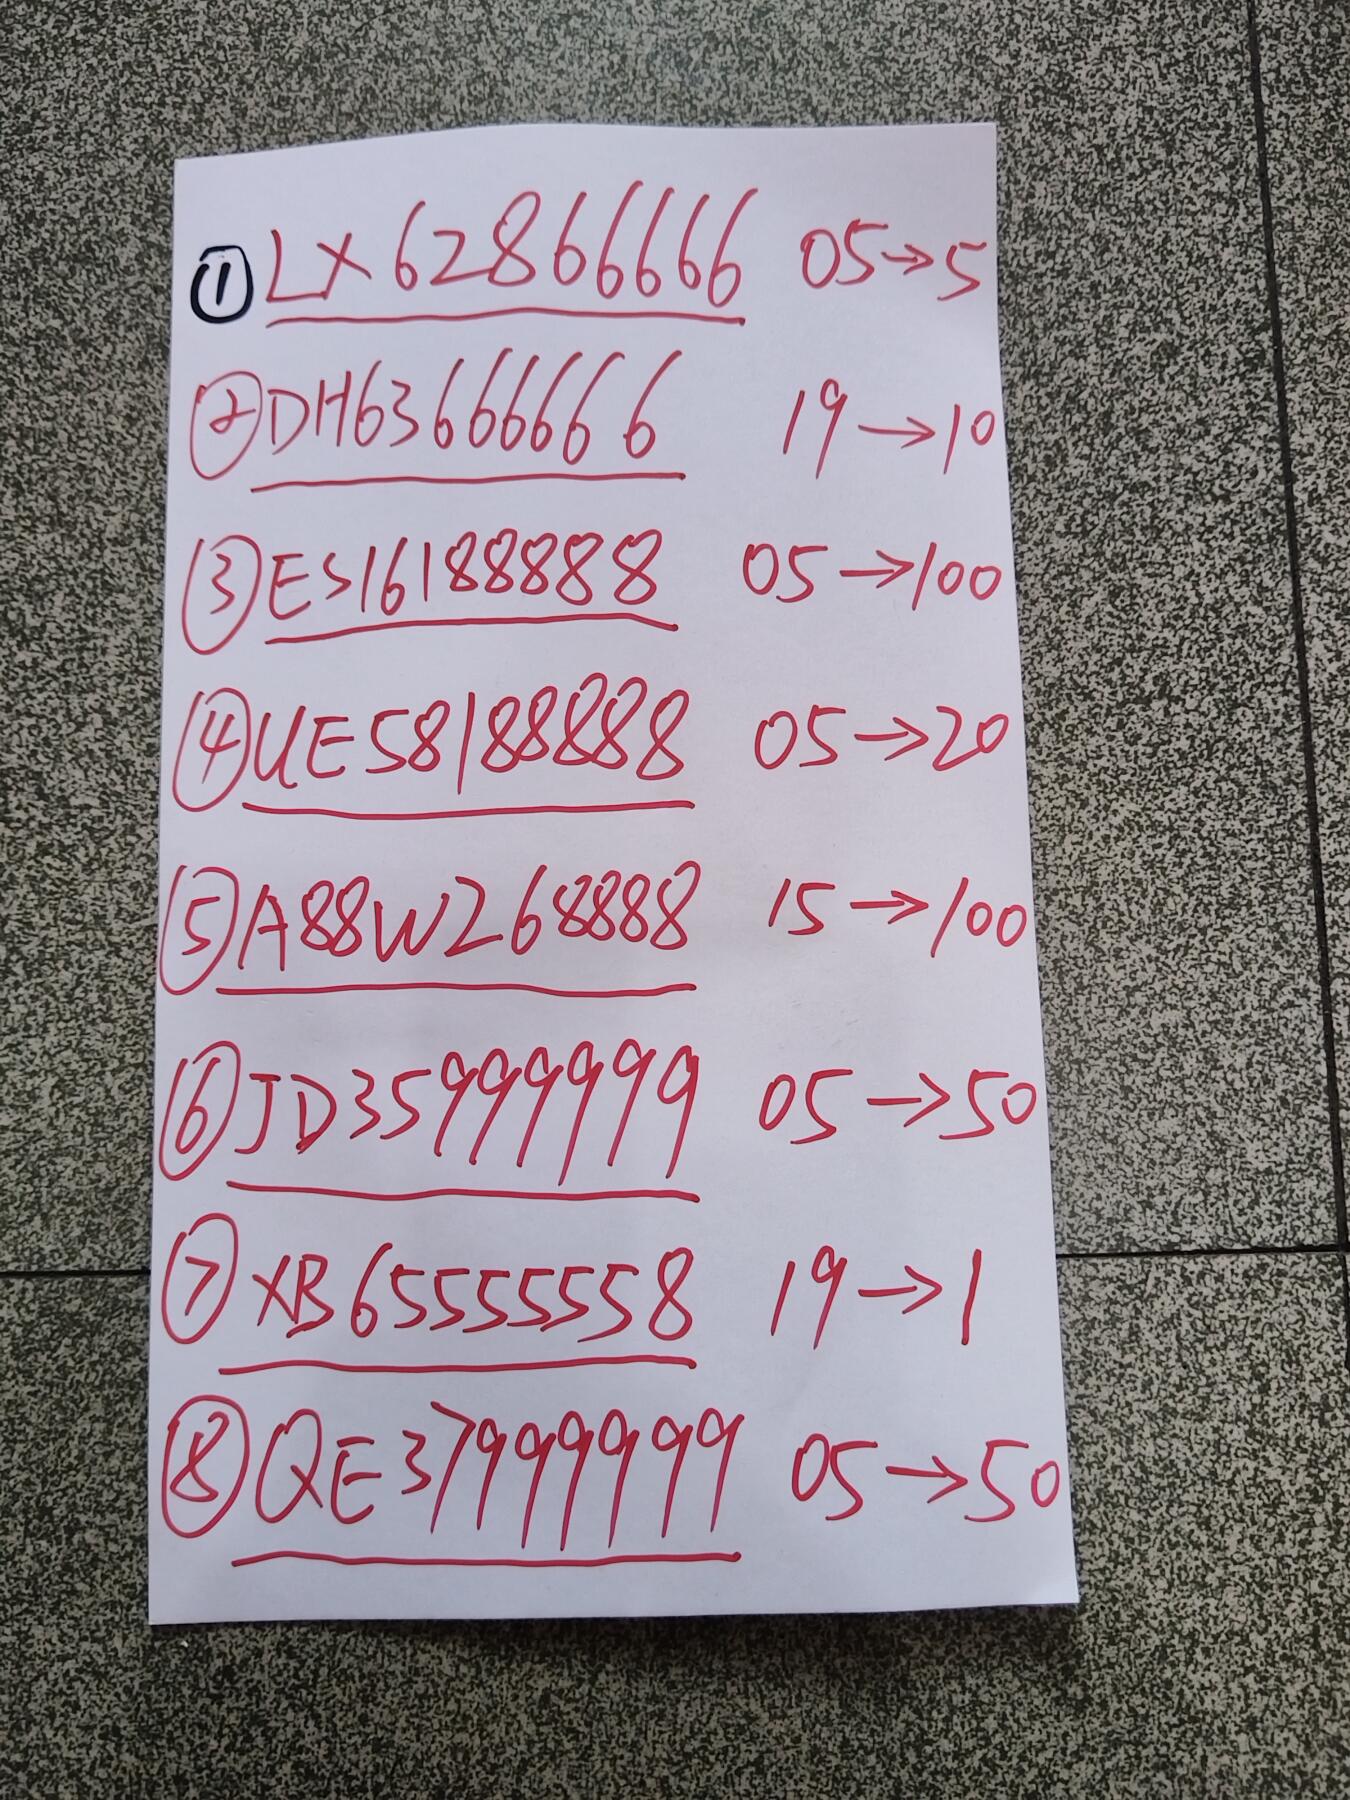 ①LX62866666 05→5
②DH63666666 19→10
③ES16188888 05→100
④UE58188888 05→20
⑤A88W268888 15→100
⑥JD35999999 05→50
⑦XB65555558 19→1
⑧QE37999999 05→50